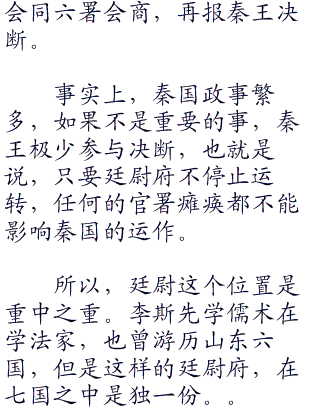 会同六署会商，再报秦王决
断。
事实上，秦国政事繁
多，如果不是重要的事，秦
王极少参与决断，也就是
说，只要廷尉府不停止运
转，任何的官署瘫痪都不能
影响秦国的运作。
所以，廷尉这个位置是
重中之重。李斯先学儒术在
学法家，也曾游历山东六
国，但是这样的廷尉府，在
七国之中是独一份。。